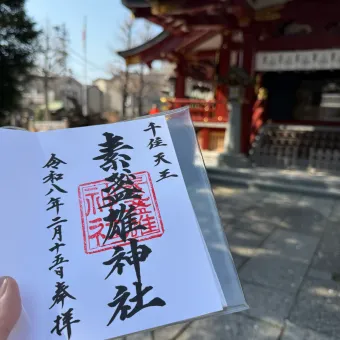 千住天王
素盞雄神社
令和八年二月十五日奉拝